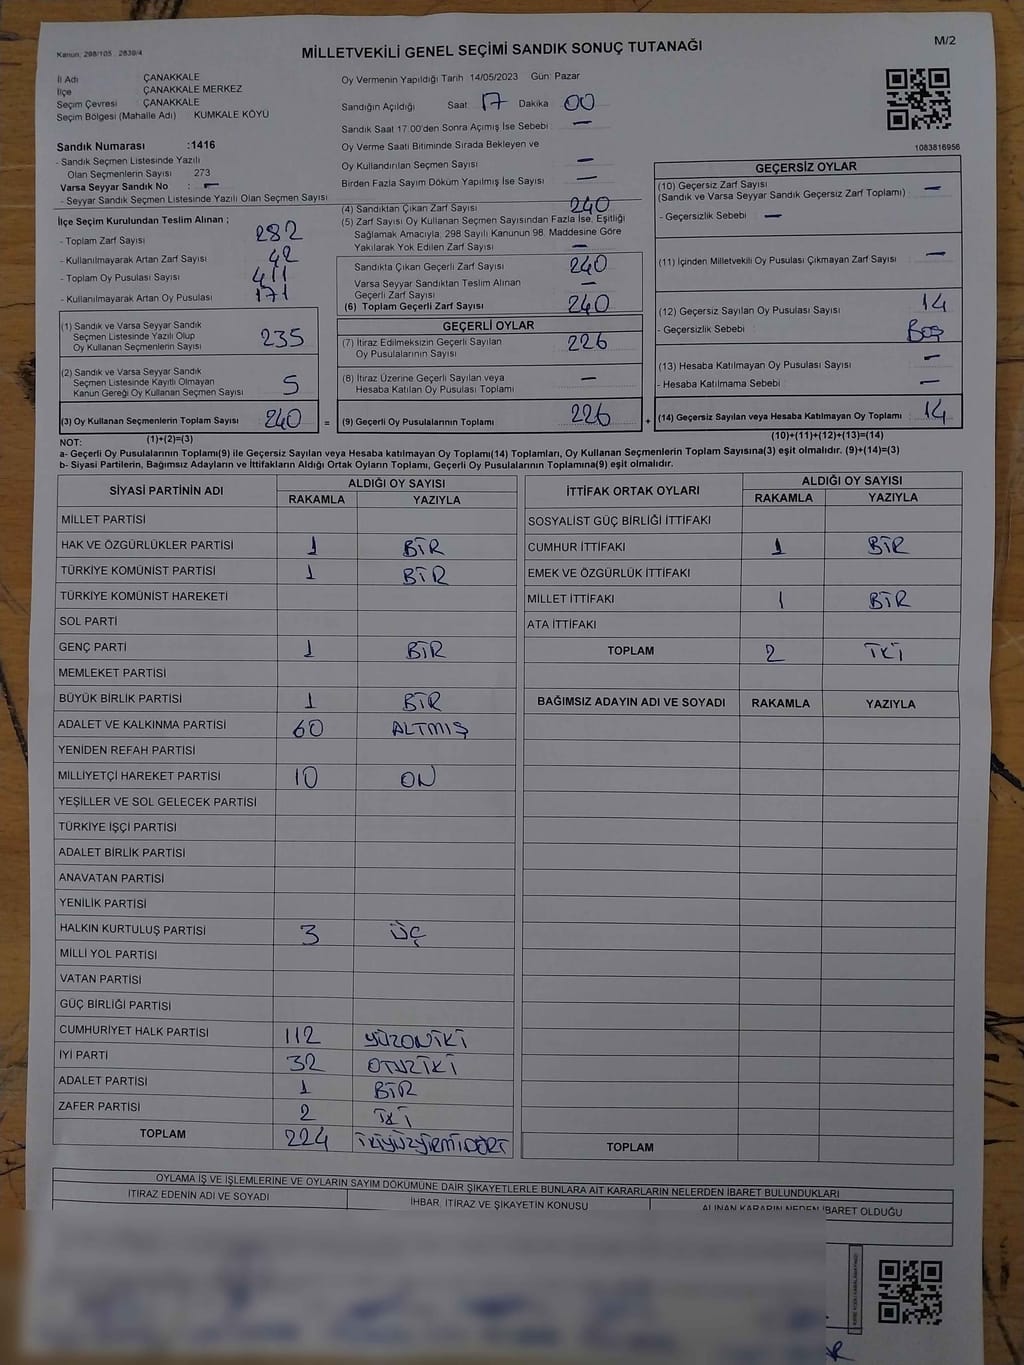 Kanun: 298/105 . 2839/4
MİLLETVEKİLİ GENEL SEÇİMİ SANDIK SONUÇ TUTANAĞI
M/2
İl Adı ÇANAKKALE
İlçe ÇANAKKALE MERKEZ
Seçim Çevresi ÇANAKKALE
Seçim Bölgesi (Mahalle Adı) KUMKALE KÖYÜ
Oy Vermenin Yapıldığı Tarih 14/05/2023 Gün: Pazar
Sandığın Açıldığı Saat 17 Dakika 00
Sandık Saat 17.00'den Sonra Açımış İse Sebebi : —
Oy Verme Saati Bitiminde Sırada Bekleyen ve
Oy Kullandırılan Seçmen Sayısı —
Birden Fazla Sayım Döküm Yapılmış İse Sayısı —
1083816956
Sandık Numarası :1416
- Sandık Seçmen Listesinde Yazılı
Olan Seçmenlerin Sayısı 273
Varsa Seyyar Sandık No : —
- Seyyar Sandık Seçmen Listesinde Yazılı Olan Seçmen Sayısı
İlçe Seçim Kurulundan Teslim Alınan ;
- Toplam Zarf Sayısı 282
- Kullanılmayarak Artan Zarf Sayısı 42
- Toplam Oy Pusulası Sayısı 411
- Kullanılmayarak Artan Oy Pusulası 171
(1) Sandık ve Varsa Seyyar Sandık
Seçmen Listesinde Yazılı Olup
Oy Kullanan Seçmenlerin Sayısı 235
(2) Sandık ve Varsa Seyyar Sandık
Seçmen Listesinde Kayıtlı Olmayan
Kanun Gereği Oy Kullanan Seçmen Sayısı 5
(3) Oy Kullanan Seçmenlerin Toplam Sayısı 240
(1)+(2)=(3)
(4) Sandıktan Çıkan Zarf Sayısı 240
(5) Zarf Sayısı Oy Kullanan Seçmen Sayısından Fazla İse, Eşitliği
Sağlamak Amacıyla, 298 Sayılı Kanunun 98. Maddesine Göre
Yakılarak Yok Edilen Zarf Sayısı —
Sandıkta Çıkan Geçerli Zarf Sayısı 240
Varsa Seyyar Sandıktan Teslim Alınan
Geçerli Zarf Sayısı —
(6) Toplam Geçerli Zarf Sayısı 240
GEÇERLİ OYLAR
(7) İtiraz Edilmeksizin Geçerli Sayılan
Oy Pusulalarının Sayısı 226
(8) İtiraz Üzerine Geçerli Sayılan veya
Hesaba Katılan Oy Pusulası Toplamı —
= (9) Geçerli Oy Pusulalarının Toplamı 226 +
GEÇERSİZ OYLAR
(10) Geçersiz Zarf Sayısı
(Sandık ve Varsa Seyyar Sandık Geçersiz Zarf Toplamı) —
- Geçersizlik Sebebi : —
(11) İçinden Milletvekili Oy Pusulası Çıkmayan Zarf Sayısı —
(12) Geçersiz Sayılan Oy Pusulası Sayısı 14
- Geçersizlik Sebebi : Boş
(13) Hesaba Katılmayan Oy Pusulası Sayısı —
- Hesaba Katılmama Sebebi : —
(14) Geçersiz Sayılan veya Hesaba Katılmayan Oy Toplamı 14
(10)+(11)+(12)+(13)=(14)
NOT:
a- Geçerli Oy Pusulalarının Toplamı(9) ile Geçersiz Sayılan veya Hesaba katılmayan Oy Toplamı(14) Toplamları, Oy Kullanan Seçmenlerin Toplam Sayısına(3) eşit olmalıdır. (9)+(14)=(3)
b- Siyasi Partilerin, Bağımsız Adayların ve İttifakların Aldığı Ortak Oyların Toplamı, Geçerli Oy Pusulalarının Toplamına(9) eşit olmalıdır.
SİYASİ PARTİNİN ADI ALDIĞI OY SAYISI
RAKAMLA YAZIYLA
MİLLET PARTİSİ
HAK VE ÖZGÜRLÜKLER PARTİSİ 1 BİR
TÜRKİYE KOMÜNİST PARTİSİ 1 BİR
TÜRKİYE KOMÜNİST HAREKETİ
SOL PARTİ
GENÇ PARTİ 1 BİR
MEMLEKET PARTİSİ
BÜYÜK BİRLİK PARTİSİ 1 BİR
ADALET VE KALKINMA PARTİSİ 60 ALTMIŞ
YENİDEN REFAH PARTİSİ
MİLLİYETÇİ HAREKET PARTİSİ 10 ON
YEŞİLLER VE SOL GELECEK PARTİSİ
TÜRKİYE İŞÇİ PARTİSİ
ADALET BİRLİK PARTİSİ
ANAVATAN PARTİSİ
YENİLİK PARTİSİ
HALKIN KURTULUŞ PARTİSİ 3 ÜÇ
MİLLİ YOL PARTİSİ
VATAN PARTİSİ
GÜÇ BİRLİĞİ PARTİSİ
CUMHURİYET HALK PARTİSİ 112 YÜZONİKİ
İYİ PARTİ 32 OTUZİKİ
ADALET PARTİSİ 1 BİR
ZAFER PARTİSİ 2 İKİ
TOPLAM 224 İKİYÜZYİRMİDÖRT
İTTİFAK ORTAK OYLARI ALDIĞI OY SAYISI
RAKAMLA YAZIYLA
SOSYALİST GÜÇ BİRLİĞİ İTTİFAKI
CUMHUR İTTİFAKI 1 BİR
EMEK VE ÖZGÜRLÜK İTTİFAKI
MİLLET İTTİFAKI 1 BİR
ATA İTTİFAKI
TOPLAM 2 İKİ
BAĞIMSIZ ADAYIN ADI VE SOYADI RAKAMLA YAZIYLA
TOPLAM
OYLAMA İŞ VE İŞLEMLERİNE VE OYLARIN SAYIM DÖKÜMÜNE DAİR ŞİKAYETLERLE BUNLARA AİT KARARLARIN NELERDEN İBARET BULUNDUKLARI
İTİRAZ EDENİN ADI VE SOYADI İHBAR, İTİRAZ VE ŞİKAYETİN KONUSU ALINAN KARARIN NEDEN İBARET OLDUĞU